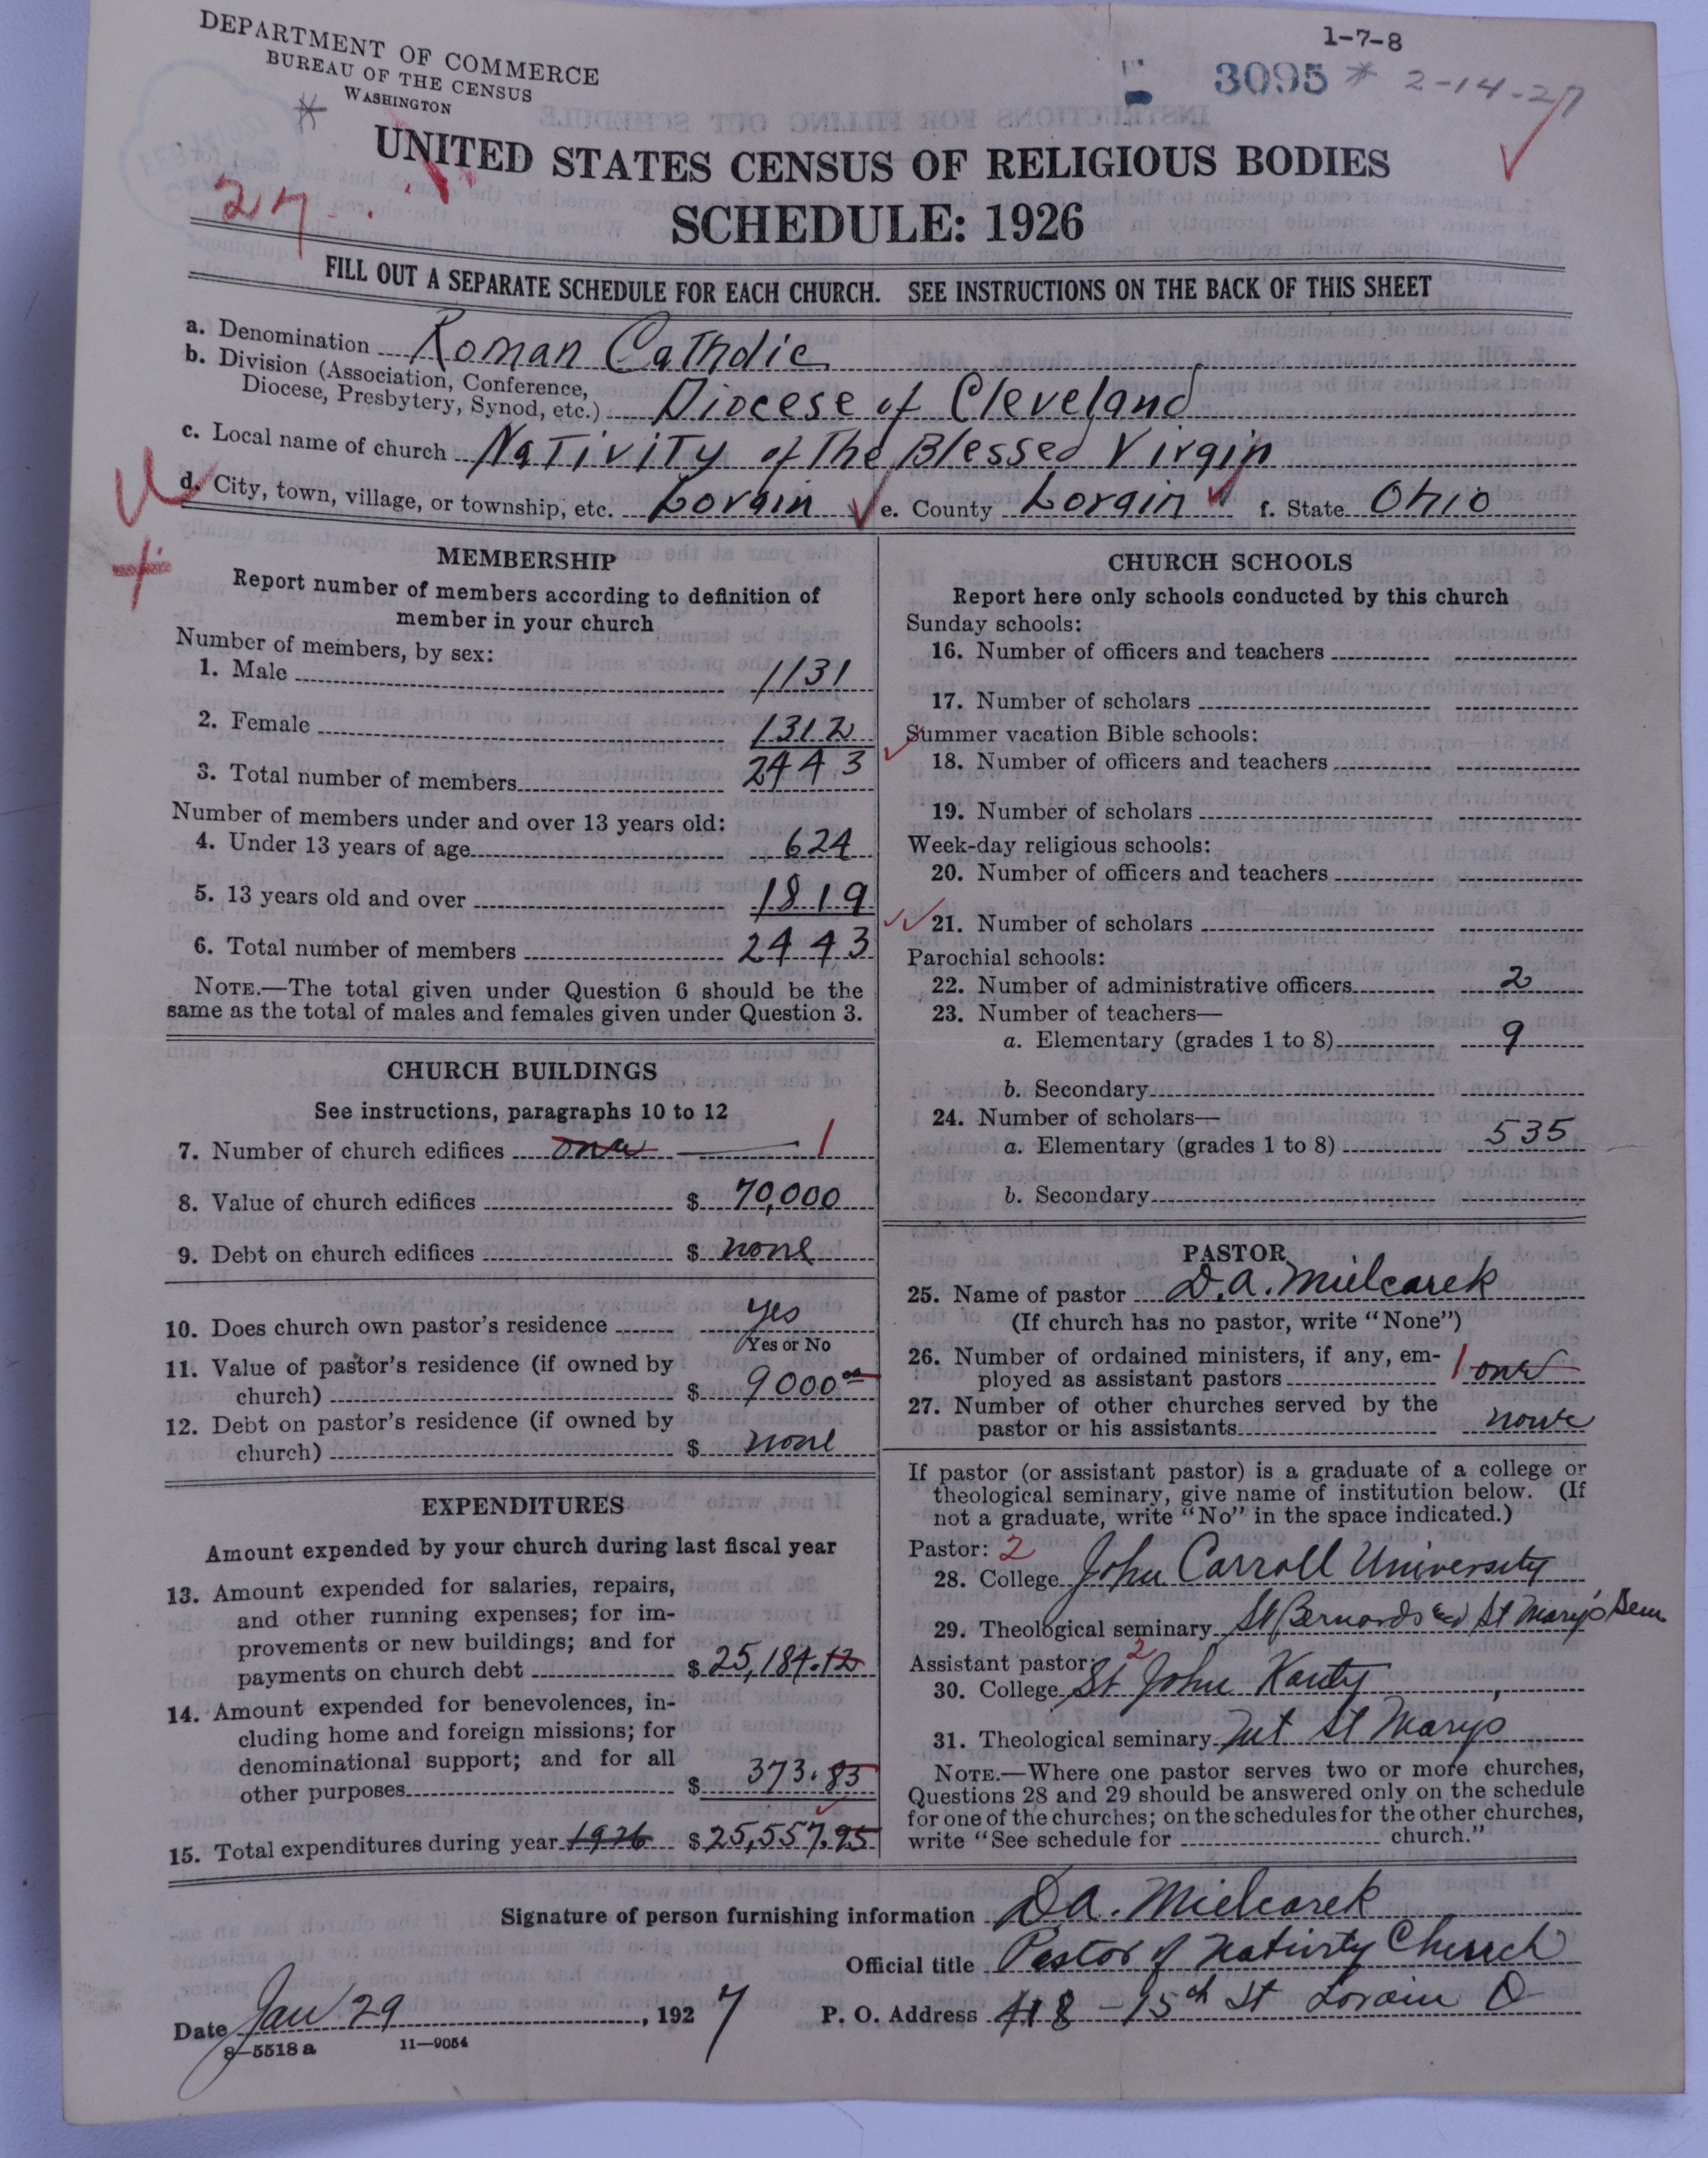 DEPARTMENT OF COMMERCE
BUREAU OF THE CENSUS
WASHINGTON
1-7-8
3095 * 2-14-27
*
27
UNITED STATES CENSUS OF RELIGIOUS BODIES
SCHEDULE: 1926
FILL OUT A SEPARATE SCHEDULE FOR EACH CHURCH. SEE INSTRUCTIONS ON THE BACK OF THIS SHEET
a. Denomination Roman Catholic
b. Division (Association, Conference,
Diocese, Presbytery, Synod, etc.) Diocese of Cleveland
c. Local name of church Nativity of The Blessed Virgin
d. City, town, village, or township, etc. Lorain e. County Lorain f. State Ohio
MEMBERSHIP
Report number of members according to definition of
member in your church
Number of members, by sex:
1. Male 1131
2. Female 1312
3. Total number of members 2443
Number of members under and over 13 years old:
4. Under 13 years of age 624
5. 13 years old and over 1819
6. Total number of members 2443
NOTE.—The total given under Question 6 should be the
same as the total of males and females given under Question 3.
CHURCH BUILDINGS
See instructions, paragraphs 10 to 12
7. Number of church edifices one 1
8. Value of church edifices $ 70,000
9. Debt on church edifices $ none
10. Does church own pastor's residence yes
Yes or No
11. Value of pastor's residence (if owned by
church) $ 9000 00
12. Debt on pastor's residence (if owned by
church) $ none
EXPENDITURES
Amount expended by your church during last fiscal year
13. Amount expended for salaries, repairs,
and other running expenses; for im-
provements or new buildings; and for
payments on church debt $ 25,184.12
14. Amount expended for benevolences, in-
cluding home and foreign missions; for
denominational support; and for all
other purposes $ 373.83
15. Total expenditures during year 1926 $ 25,557.95
CHURCH SCHOOLS
Report here only schools conducted by this church
Sunday schools:
16. Number of officers and teachers
17. Number of scholars
Summer vacation Bible schools:
18. Number of officers and teachers
19. Number of scholars
Week-day religious schools:
20. Number of officers and teachers
21. Number of scholars
Parochial schools:
22. Number of administrative officers 2
23. Number of teachers—
a. Elementary (grades 1 to 8) 9
b. Secondary
24. Number of scholars—
a. Elementary (grades 1 to 8) 535
b. Secondary
PASTOR
25. Name of pastor D. A. Mielcarek
(If church has no pastor, write "None")
26. Number of ordained ministers, if any, em-
ployed as assistant pastors 1 one
27. Number of other churches served by the
pastor or his assistants none
If pastor (or assistant pastor) is a graduate of a college or
theological seminary, give name of institution below. (If
not a graduate, write "No" in the space indicated.)
Pastor: 2
28. College John Carroll University
29. Theological seminary St Bernards and St Mary's Sem
Assistant pastor: 2
30. College St John Kanty
31. Theological seminary Mt St Marys
NOTE.—Where one pastor serves two or more churches,
Questions 28 and 29 should be answered only on the schedule
for one of the churches; on the schedules for the other churches,
write "See schedule for church."
Signature of person furnishing information D. A. Mielcarek
Official title Pastor of Nativity Church
Date Jan 29, 1927 P. O. Address 418 - 15th St Lorain O
8—5518 a 11—9054